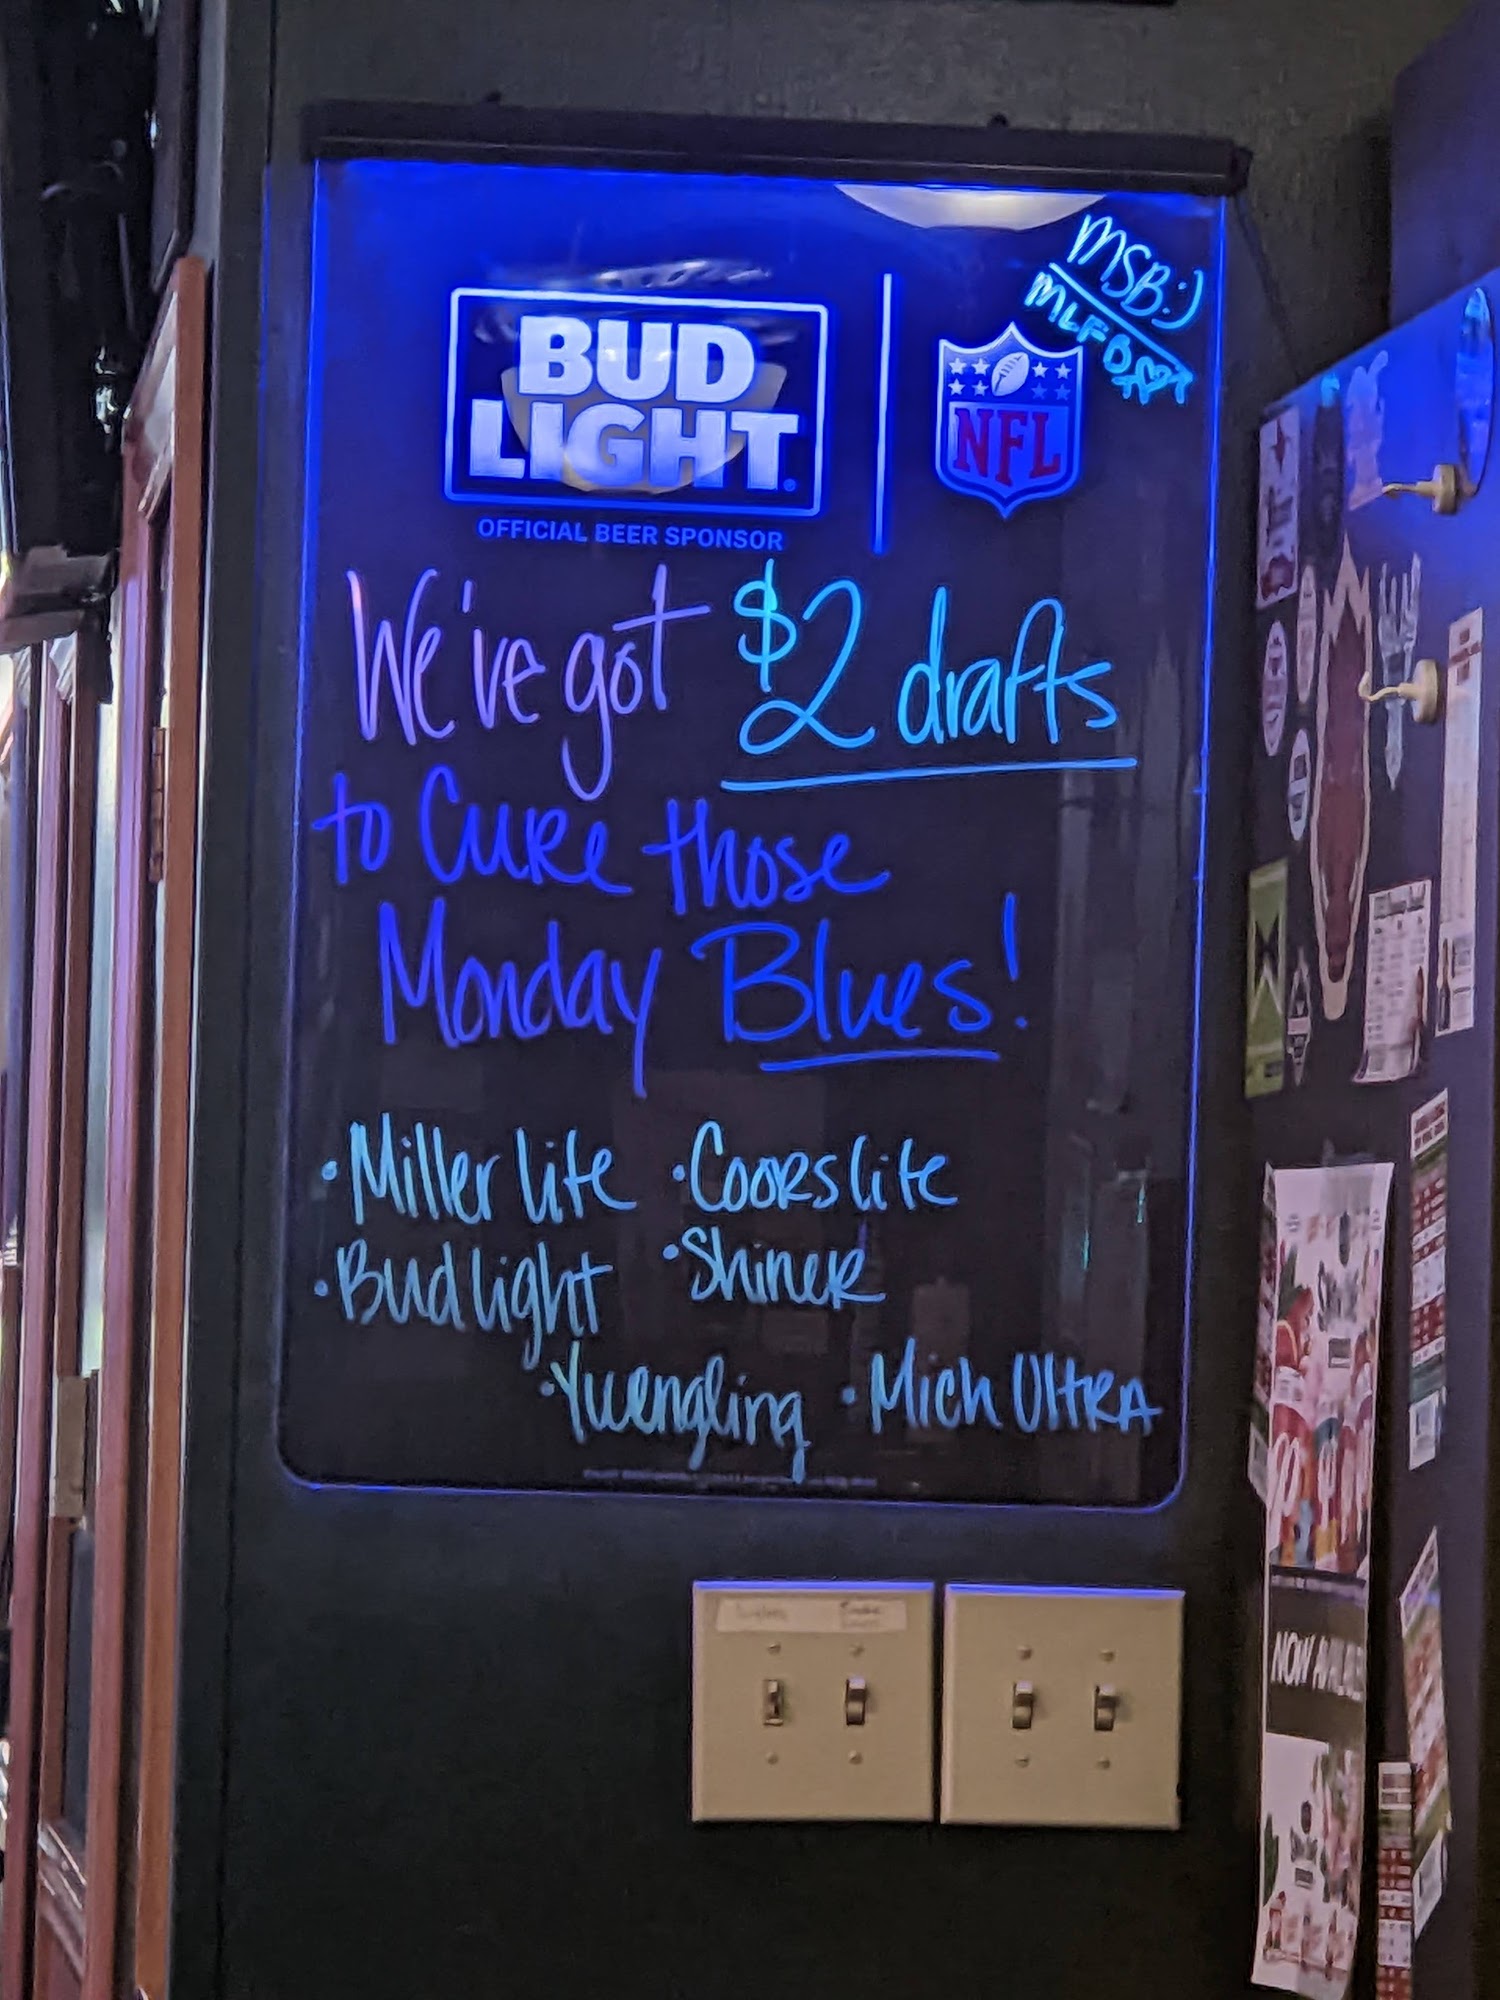 MSB:)
MLFB
BUD
LIGHT
OFFICIAL BEER SPONSOR
NFL
We've got $2 drafts
to Cure those
Monday Blues!
·Miller Lite ·Coors Lite
·Bud Light ·Shiner
·Yuengling ·Mich Ultra
NOW AVAILABLE